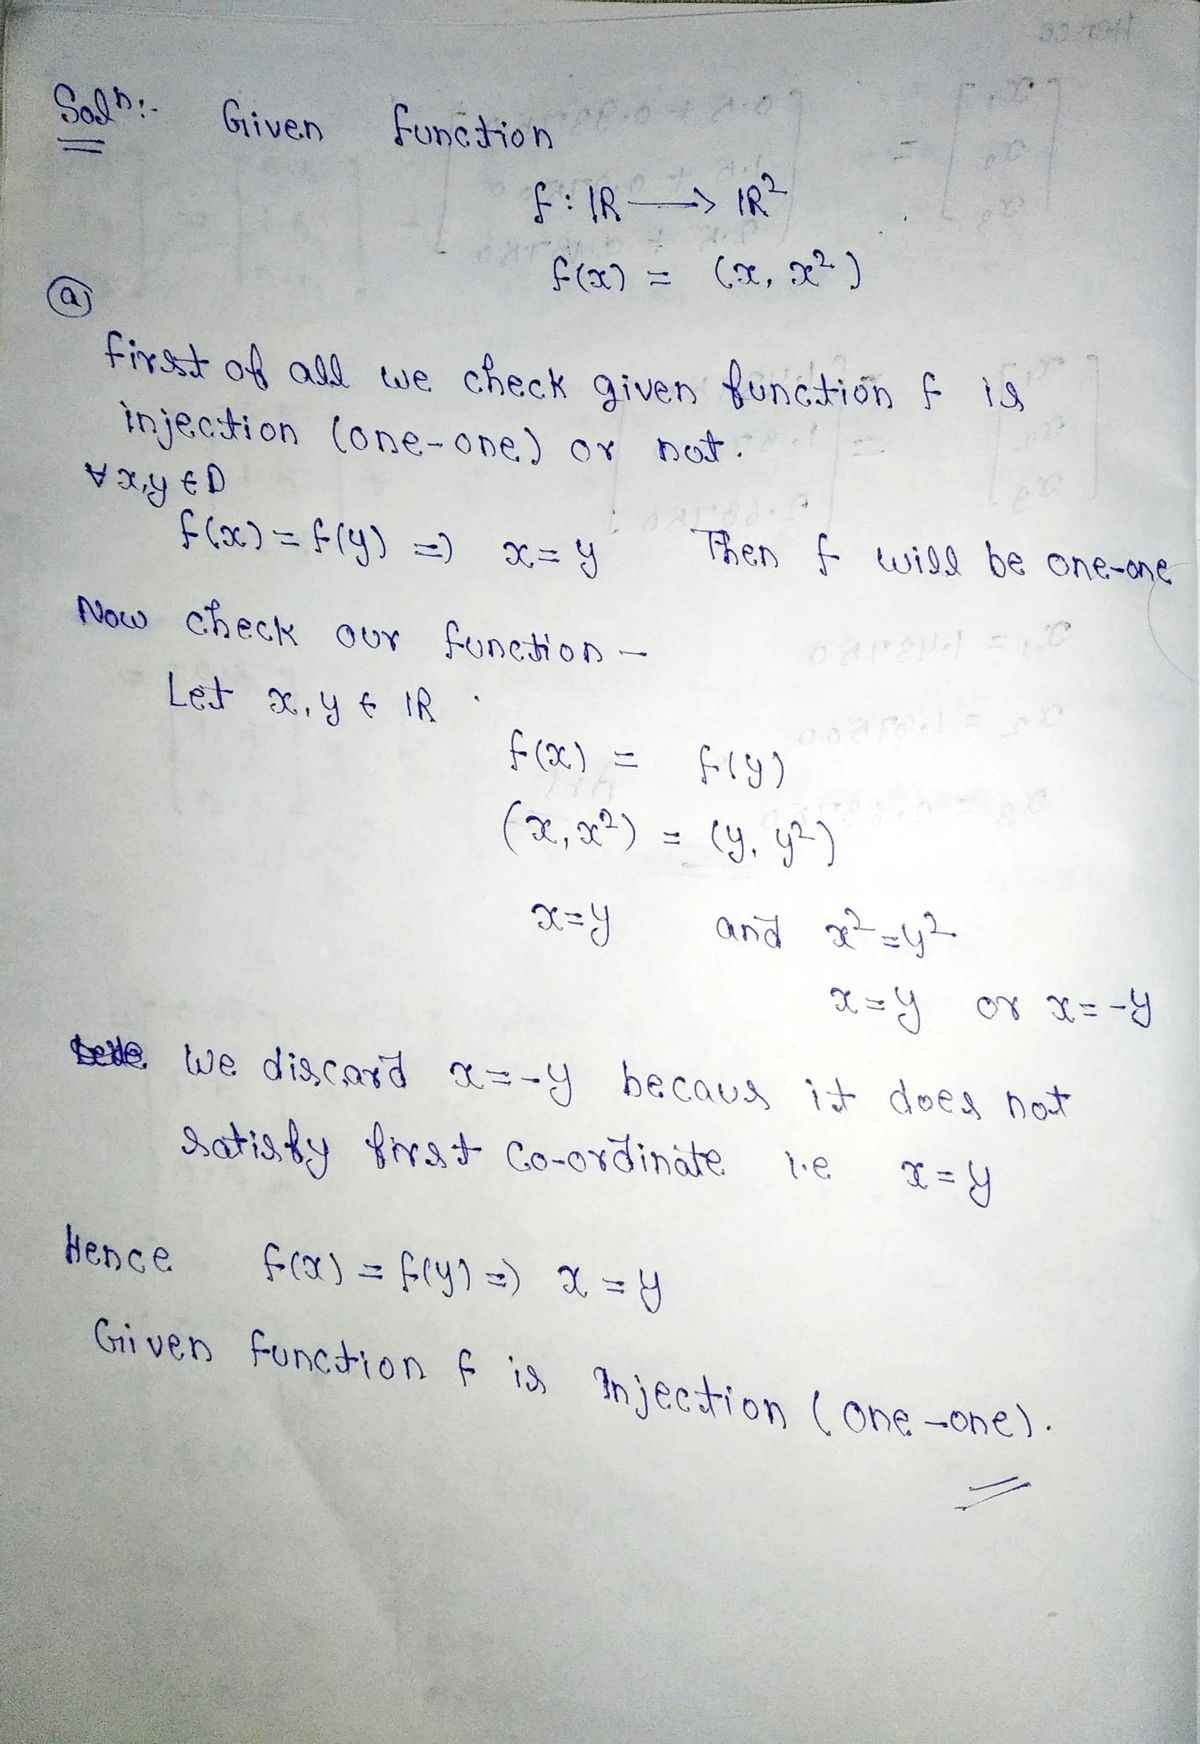 Solⁿ:- Given function
f : IR → IR²
f(x) = (x, x²)
(a)
first of all we check given function f is
injection (one-one) or not.
∀ x,y ∈ D
f(x) = f(y) ⇒ x = y Then f will be one-one
Now check our function -
Let x, y ∈ IR
f(x) = f(y)
(x, x²) = (y, y²)
x=y and x²=y²
x=y or x=-y
We discard x=-y becaus it does not
satisfy first co-ordinate i.e x=y
Hence f(x) = f(y) ⇒ x = y
Given function f is Injection (one-one).